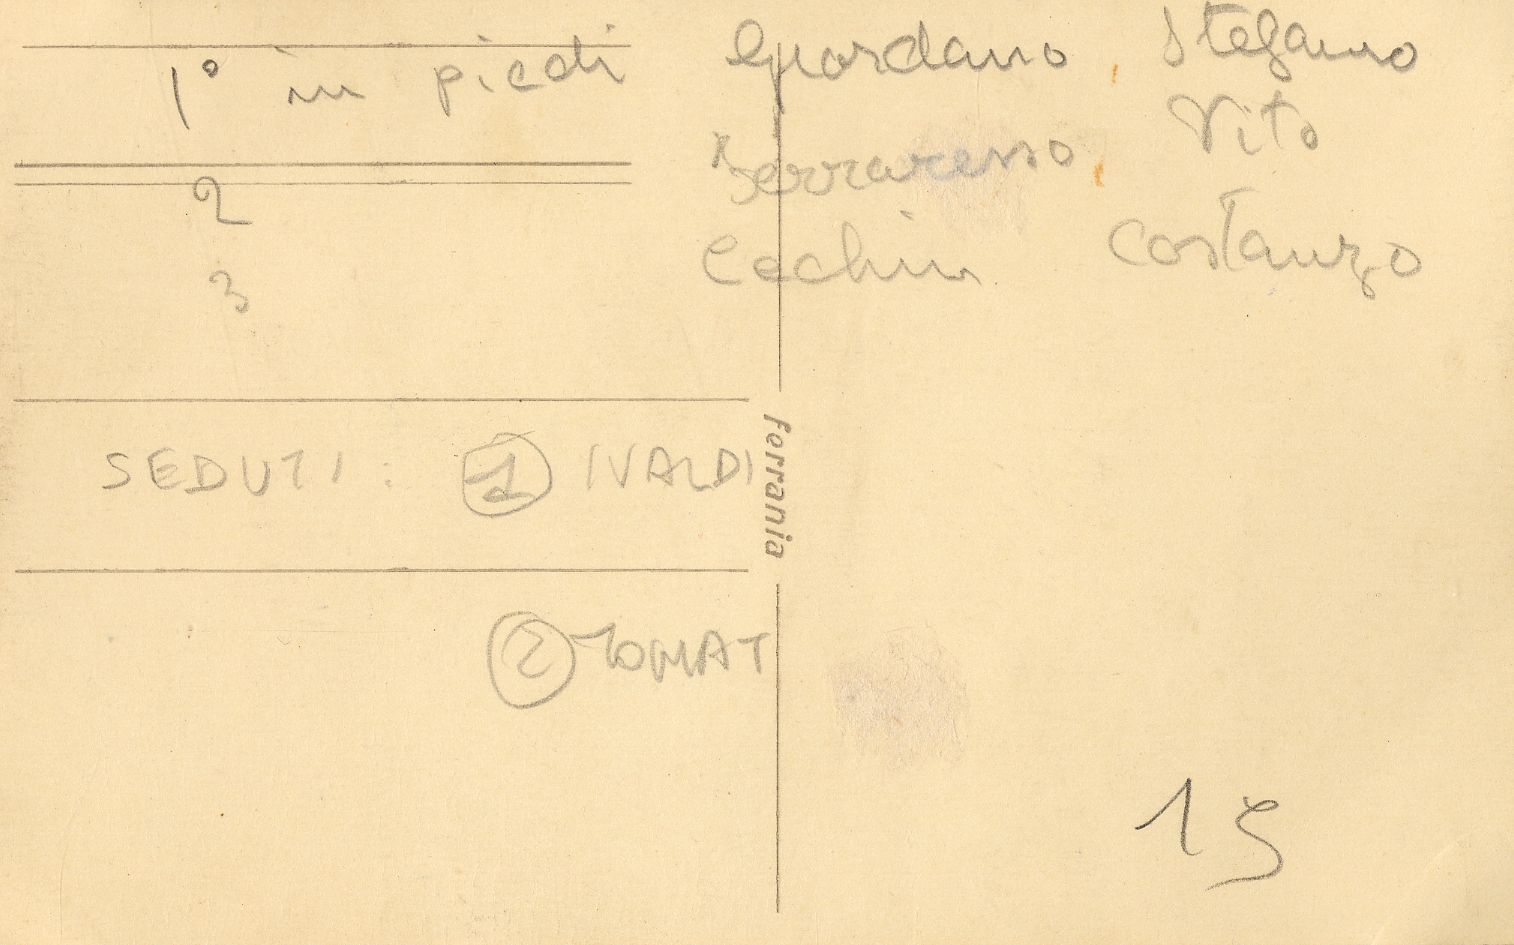 1° in piedi Giordano, Stefano
2 Ferraresso, Vito
3 Cechin Costanzo
SEDUTI: 1 IVALDI
Ferrania
2 TOMAT
19